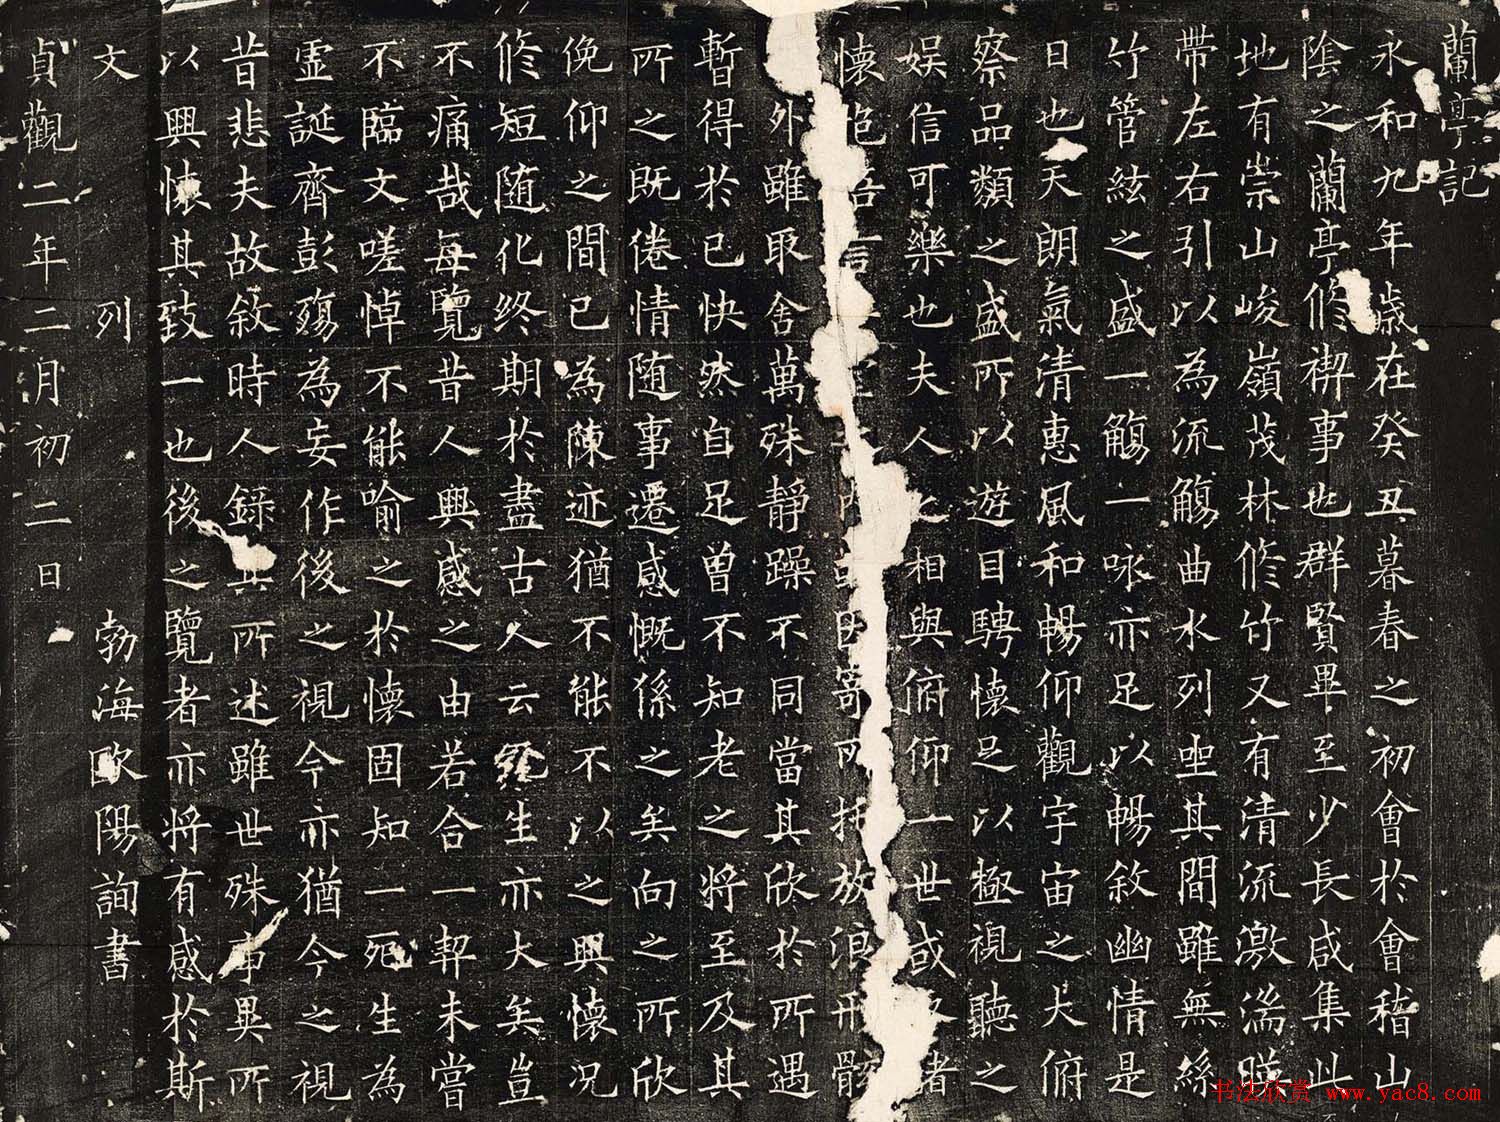 蘭亭記
永和九年歲在癸丑暮春之初會於會稽山
陰之蘭亭修禊事也群賢畢至少長咸集此
地有崇山峻嶺茂林修竹又有清流激湍暎
帶左右引以為流觴曲水列坐其間雖無絲
竹管絃之盛一觴一咏亦足以暢敘幽情是
日也天朗氣清惠風和暢仰觀宇宙之大俯
察品類之盛所以遊目騁懷足以極視聽之
娱信可樂也夫人之相與俯仰一世或取諸
懷抱悟言室之內或因寄所托放浪形骸
外雖取舍萬殊靜躁不同當其欣於所遇
暫得於己快然自足曾不知老之将至及其
所之既倦情随事遷感慨係之矣向之所欣
俛仰之間已為陳迹猶不能不以之興懷况
修短随化终期於盡古人云死生亦大矣豈
不痛哉每覽昔人興感之由若合一契未嘗
不臨文嗟悼不能喻之於懷固知一死生為
虛誕齊彭殤為妄作後之視今亦猶今之視
昔悲夫故敘時人錄其所述雖世殊事異所
以興懷其致一也後之覽者亦将有感於斯
文 列 勃海歐陽詢書
貞觀二年二月初二日
书法欣赏 www.yac8.com